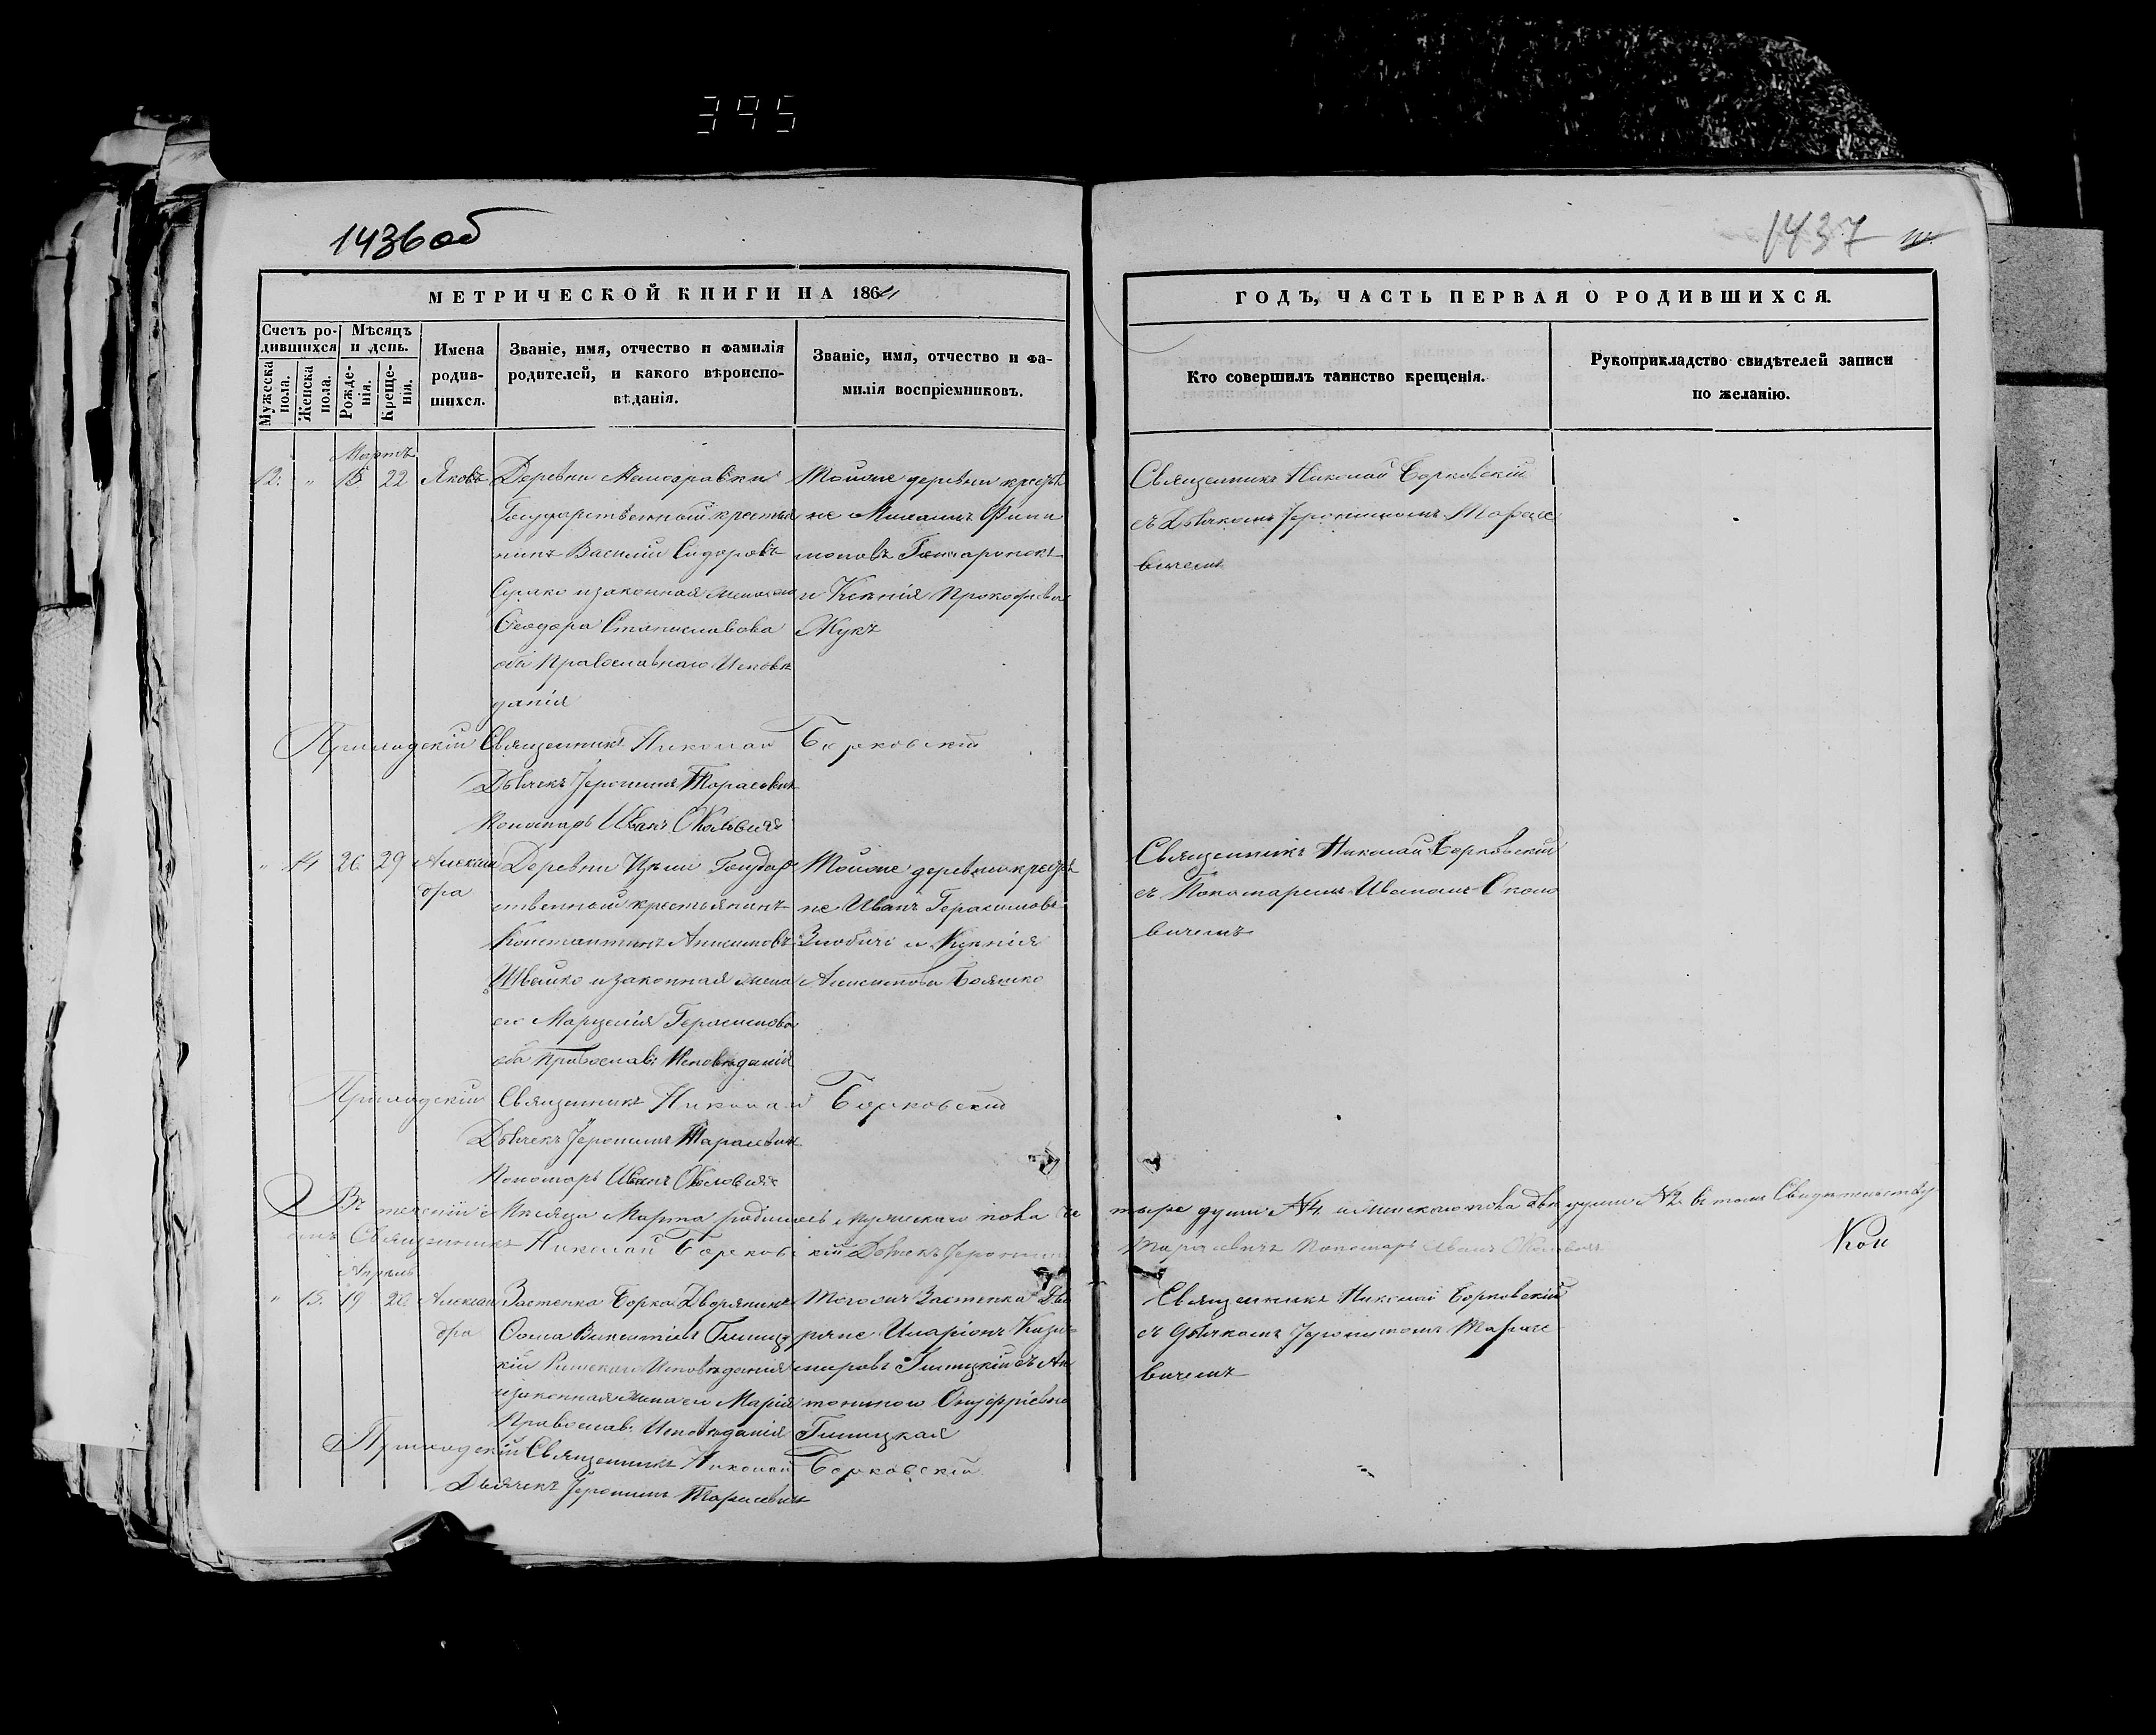 395
1436 об
1437
МЕТРИЧЕСКОЙ КНИГИ НА 1864
ГОДЪ, ЧАСТЬ ПЕРВАЯ О РОДИВШИХСЯ.
Счетъ родившихся
Мужеска пола.
Женска пола.
Мѣсяцъ и день.
Рожденія.
Крещенія.
Имена родившихся.
Званіе, имя, отчество и фамилія
родителей, и какого вѣроиспо-
вѣданія.
Званіе, имя, отчество и фа-
милія воспріемниковъ.
Кто совершилъ таинство крещенія.
Рукоприкладство свидѣтелей записи
по желанію.
Мартъ
12. " 15 22 Яковъ
Деревни
Государственный крестья
нинъ Василій Сидоровъ
и законная жена его
Ѳеодора Станиславова
оба Православнаго Исповѣ
данія
Тойже деревни крестья
не Михаилъ Фили
моновъ
и Ксенія Прокофьева
Жукъ
Священникъ Николай Борковскій
съ Дьячкомъ Іеронимомъ Тарасе
вичемъ
Приходскій Священникъ Николай Борковскій
Дьячекъ Іеронимъ Тарасевичъ
Пономарь Иванъ Околовичъ
" 14 26 29 Алексан
дра
Деревни Государ
ственный крестьянинъ
Константинъ Анисимовъ
Швайко и законная жена
его Марцелія Герасимова
оба Православ: Исповѣданія
Тойже деревни крестья
не Иванъ Герасимовъ
и Ксенія
Священникъ Николай Борковскій
съ Пономаремъ Иваномъ Около
вичемъ
Приходскій Священникъ Николай Борковскій
Дьячекъ Іеронимъ Тарасевичъ
Пономарь Иванъ Околовичъ
Въ теченіи Мѣсяца Марта родилось мужескаго пола че
тыре души №4 и женскаго пола двѣ души №2 въ томъ Свидѣтельству
емъ Священникъ Николай Борковскій Дьячекъ Іеронимъ
Тарасевичъ Пономарь Иванъ Околовичъ
Апрѣль
" 15. 19 26 Алексан
дра
Застенка Борка Дворянинъ
Ѳома Викентіевъ
кій Римскаго Исповѣданія
и законная жена его Марія
Православ: Исповѣданія
Тогожъ Застенка Дво
ряне Иларіонъ Кази
міровъ съ Ан
тониною Онуфріевною
Священникъ Николай Борковскій
съ дьячкомъ Іеронимомъ Тарасе
вичемъ
Приходскій Священникъ Николай Борковскій
Дьячекъ Іеронимъ Тарасевичъ